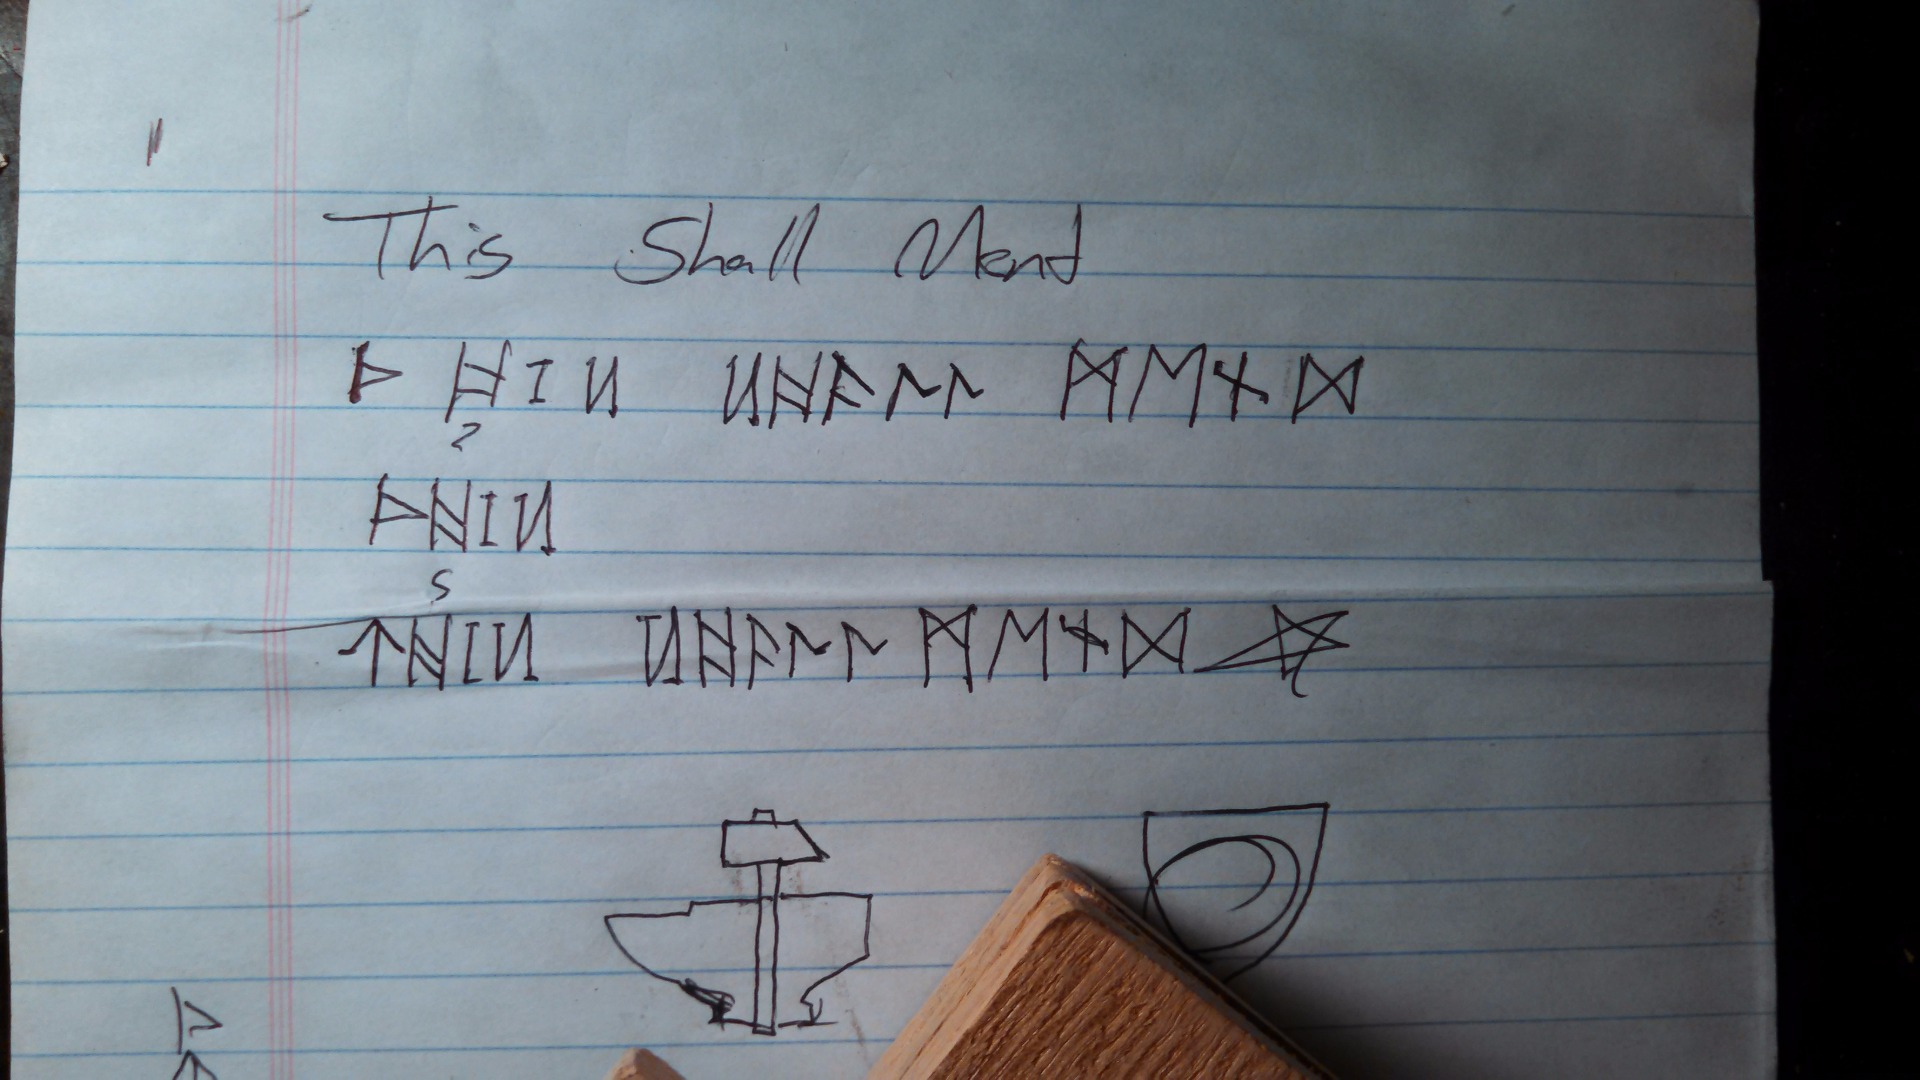 This Shall Mend
ᚦ ᚺᛁᛋ ᛋᚺᚨᛚᛚ ᛗᛖᚾᛞ
2
ᚦᚺᛁᛋ
S
ᛏᚺᛁᛋ ᛋᚺᚨᛚᛚ ᛗᛖᚾᛞ